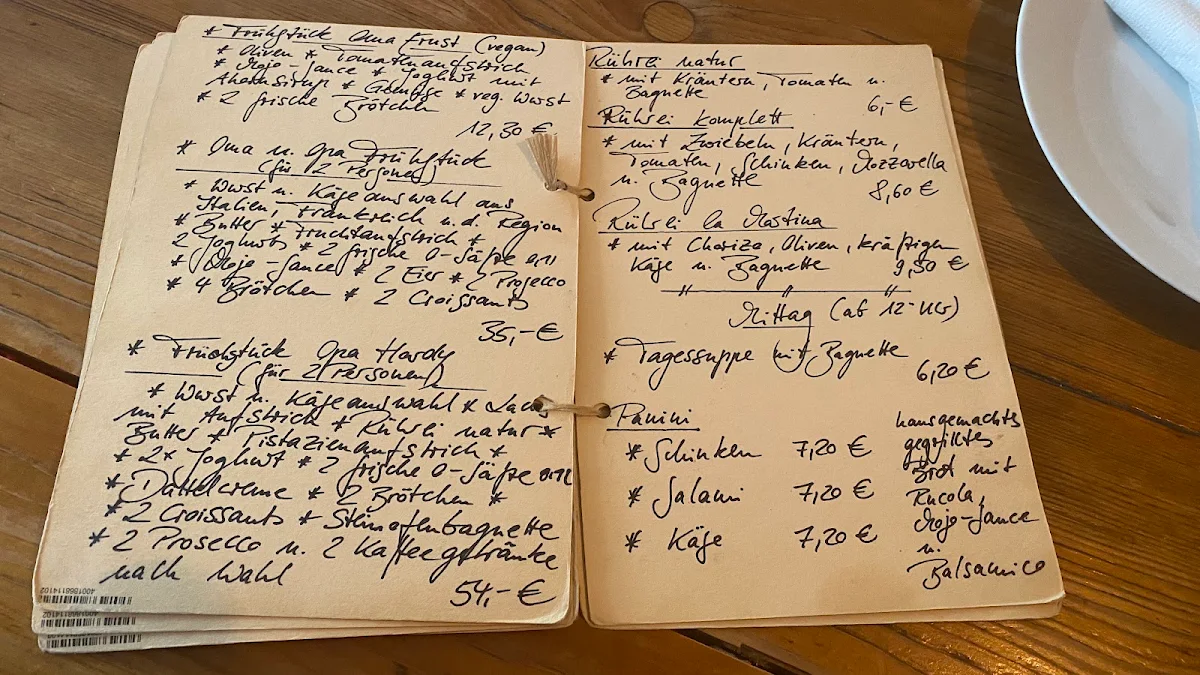 * Frühstück Oma Ernst (vegan)
* Oliven * Tomatenaufstrich
* Mojo-Sauce * Joghurt mit
Ahornsirup * Gemüse * veg. Wurst
* 2 frische Brötchen
12,30 €
* Oma u. Opa Frühstück
(für 2 Personen)
* Wurst u. Käseauswahl aus
Italien, Frankreich u. d. Region
* Butter * Fruchtaufstrich *
2 Joghurts * 2 frische O-Säfte 0,1l
* Mojo-Sauce * 2 Eier * 2 Prosecco
* 4 Brötchen * 2 Croissants
35,- €
* Frühstück Opa Hardy
(für 2 Personen)
* Wurst u. Käseauswahl * Lachs
mit Aufstrich * Rührei natur *
Butter * Pistazienaufstrich *
* 2x Joghurt * 2 frische O-Säfte 0,1l
* Dattelcreme * 2 Brötchen *
* 2 Croissants * Steinofenbaguette
* 2 Prosecco u. 2 Kaffeegetränke
nach Wahl
54,- €
4001868114102
4001868114102
Rührei natur
* mit Kräutern, Tomaten u.
Baguette
6,- €
Rührei komplett
* mit Zwiebeln, Kräutern,
Tomaten, Schinken, Mozzarella
u. Baguette
8,60 €
Rührei la Mastina
* mit Chorizo, Oliven, kräftigen
Käse u. Baguette 9,50 €
Mittag (ab 12-Uhr)
* Tagessuppe mit Baguette
6,20 €
Panini
* Schinken 7,20 €
* Salami 7,20 €
* Käse 7,20 €
hausgemachtes
gegrilltes
Brot mit
Rucola,
Mojo-Sauce
u.
Balsamico